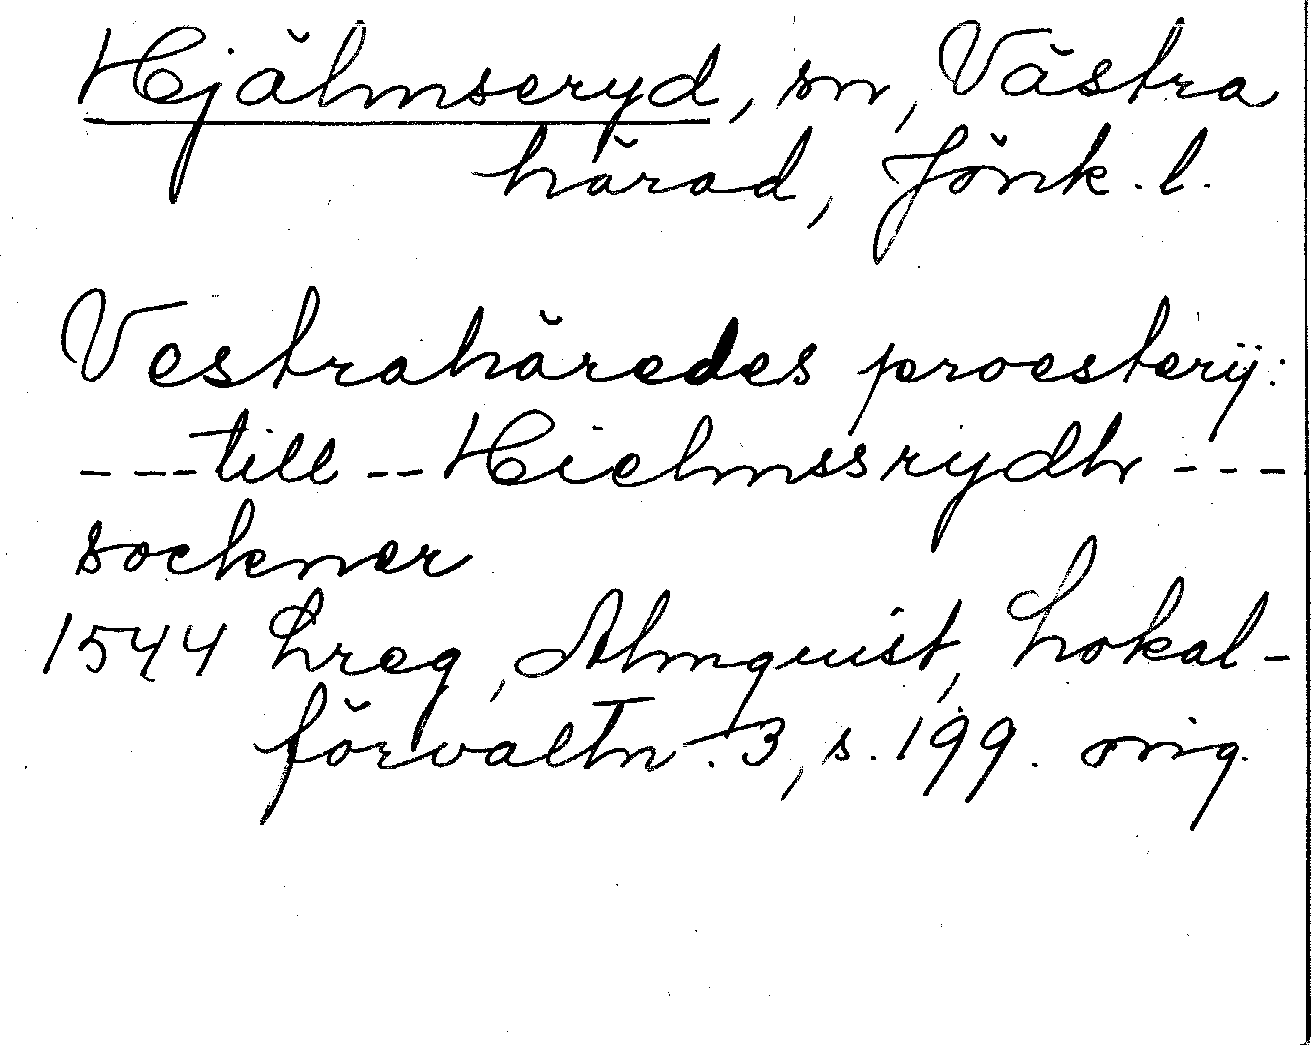 Hjälmseryd, sn, Västra
härad, Jönk. l.
Vestrahäredes proesterÿ:
- --- till -- Hielmssrydh ---
sockner
1544 Lreg, Almquist, Lokal-
förvaltn. 3, s. 199. orig.